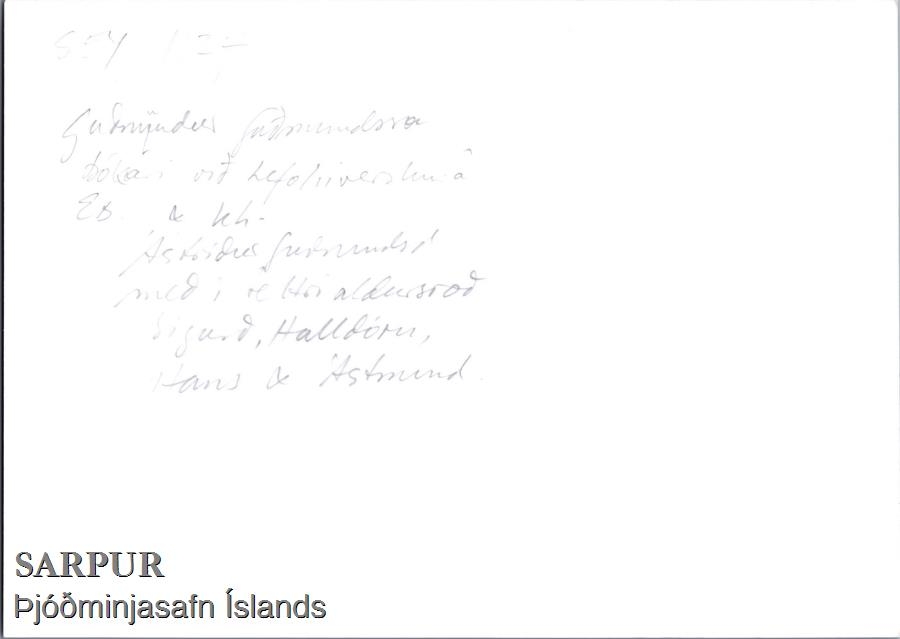 Guðmundur Guðmundsson
bókari við Lefoliiverslun á
Eb. & kh.
Ástríður Guðmunds
með í réttri aldursröð
Sigurð, Halldóru,
Hans & Ástmund.
SARPUR
Þjóðminjasafn Íslands